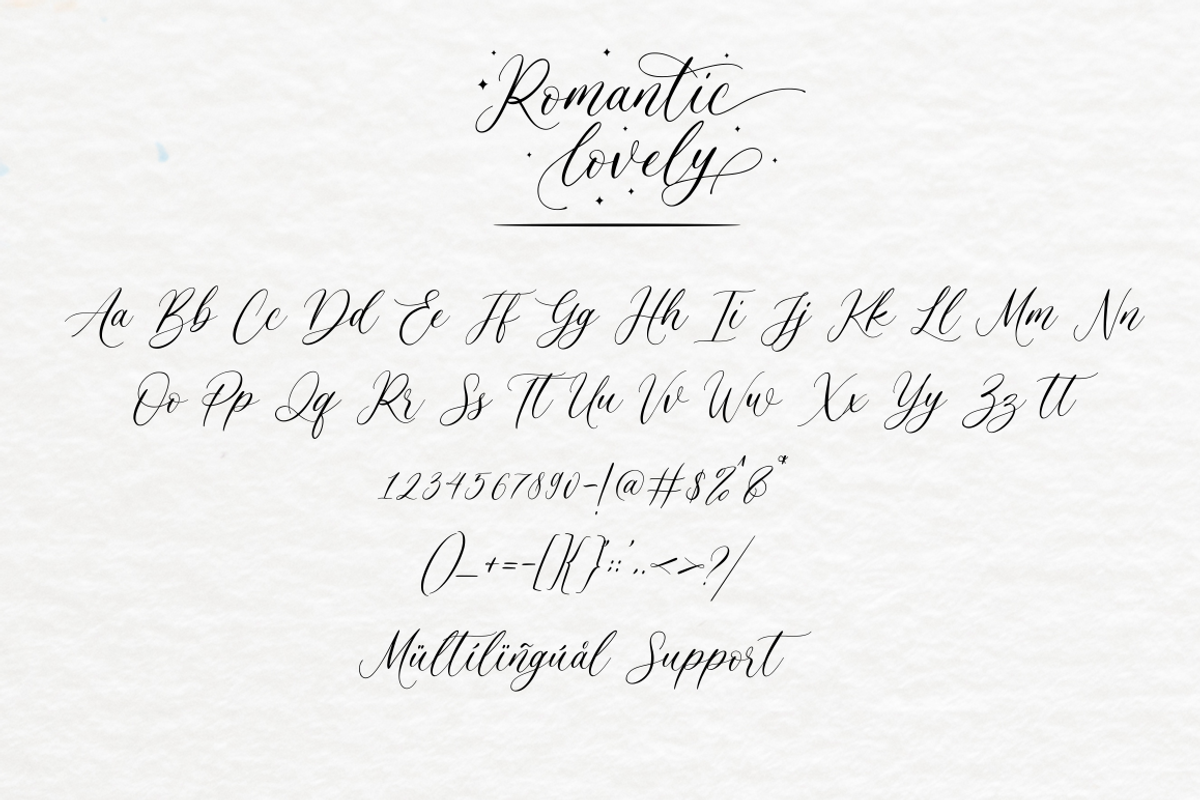 Romantic
lovely
Aa Bb Cc Dd Ee Ff Gg Hh Ii Jj Kk Ll Mm Nn
Oo Pp Qq Rr Ss Tt Uu Vv Ww Xx Yy Zz tt
1234567890-!@#$%^&*
()_+=-[]{}":;',.<>?/
Mültílïñgúål Support